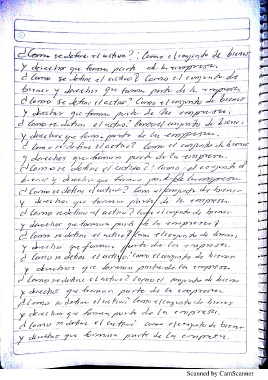 ¿Como se define el activo? Como el conjunto de bienes
y derechos que forman parte de la empresa.
¿Como se define el activo? Como el conjunto de
bienes y derechos que forman parte de la empresa.
¿Como se define el activo? Como el conjunto de bienes
y derechos que forman parte de la empresa.
¿Como se define el activo? Como el conjunto de bienes,
y derechos que forman parte de la empresa.
¿Como se define el activo? Como el conjunto de bienes
y derechos que forman parte de la empresa.
¿Como se define el activo? Como el conjunto de
bienes y derechos que forman parte de la empresa.
¿Como se define el activo? Como el conjunto de bienes
y derechos que forman parte de la empresa.
¿Como se define el activo? Como el conjunto de bienes,
y derechos que forman parte de la empresa.
¿Como se define el activo? Como el conjunto de bienes,
y derechos que forman parte de la empresa.
¿Como se define el activo? Como el conjunto de bienes
y derechos que forman parte de la empresa.
¿Como se define el activo? Como el conjunto de bienes
y derechos que forman parte de la empresa.
¿Como se define el activo? Como el conjunto de bienes
y derechos que forman parte de la empresa.
¿Como se define el activo? Como el conjunto de bienes
y derechos que forman parte de la empresa.
Scanned by CamScanner